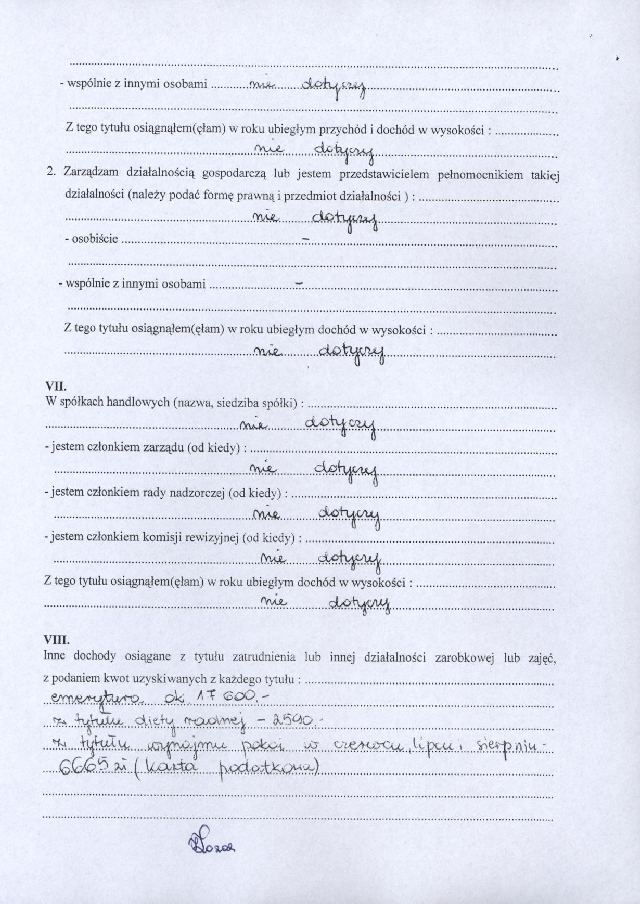 - wspólnie z innymi osobami ............nie........dotyczy
Z tego tytułu osiągnąłem(ęłam) w roku ubiegłym przychód i dochód w wysokości : ..................
nie dotyczy
2. Zarządzam działalnością gospodarczą lub jestem przedstawicielem pełnomocnikiem takiej
działalności (należy podać formę prawną i przedmiot działalności ) : ..................
nie dotyczy
- osobiście .................. –
- wspólnie z innymi osobami .................. –
Z tego tytułu osiągnąłem(ęłam) w roku ubiegłym dochód w wysokości : ..................
nie dotyczy
VII.
W spółkach handlowych (nazwa, siedziba spółki) : ..................
nie dotyczy
- jestem członkiem zarządu (od kiedy) : ..................
nie dotyczy
- jestem członkiem rady nadzorczej (od kiedy) : ..................
nie dotyczy
- jestem członkiem komisji rewizyjnej (od kiedy) : ..................
nie dotyczy
Z tego tytułu osiągnąłem(ęłam) w roku ubiegłym dochód w wysokości : ..................
nie dotyczy
VIII.
Inne dochody osiągane z tytułu zatrudnienia lub innej działalności zarobkowej lub zajęć,
z podaniem kwot uzyskiwanych z każdego tytułu : ..................
emerytura ok 17 600.-
z tytułu diety radnej - 2590.-
z tytułu wynajmu pokoi w czerwcu, lipcu i sierpniu -
6665 zł (karta podatkowa)